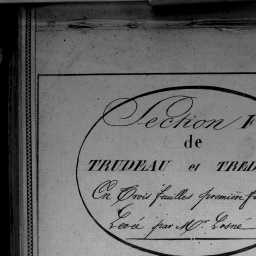 Section
de
TRUDEAU et
En Trois feuilles première
Levé par Mr. Losné